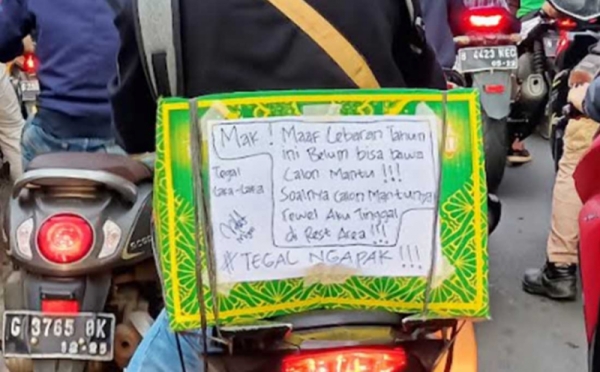 Mak ! Maaf Lebaran Tahun
ini Belum bisa bawa
Calon Mantu !!!
Soalnya Calon Mantunya
rewel Aku Tinggal
di Rest Area !!!
Tegal
Laka-Laka
# TEGAL NGAPAK !!!
G 3765 OK
12.25
4423 NEC